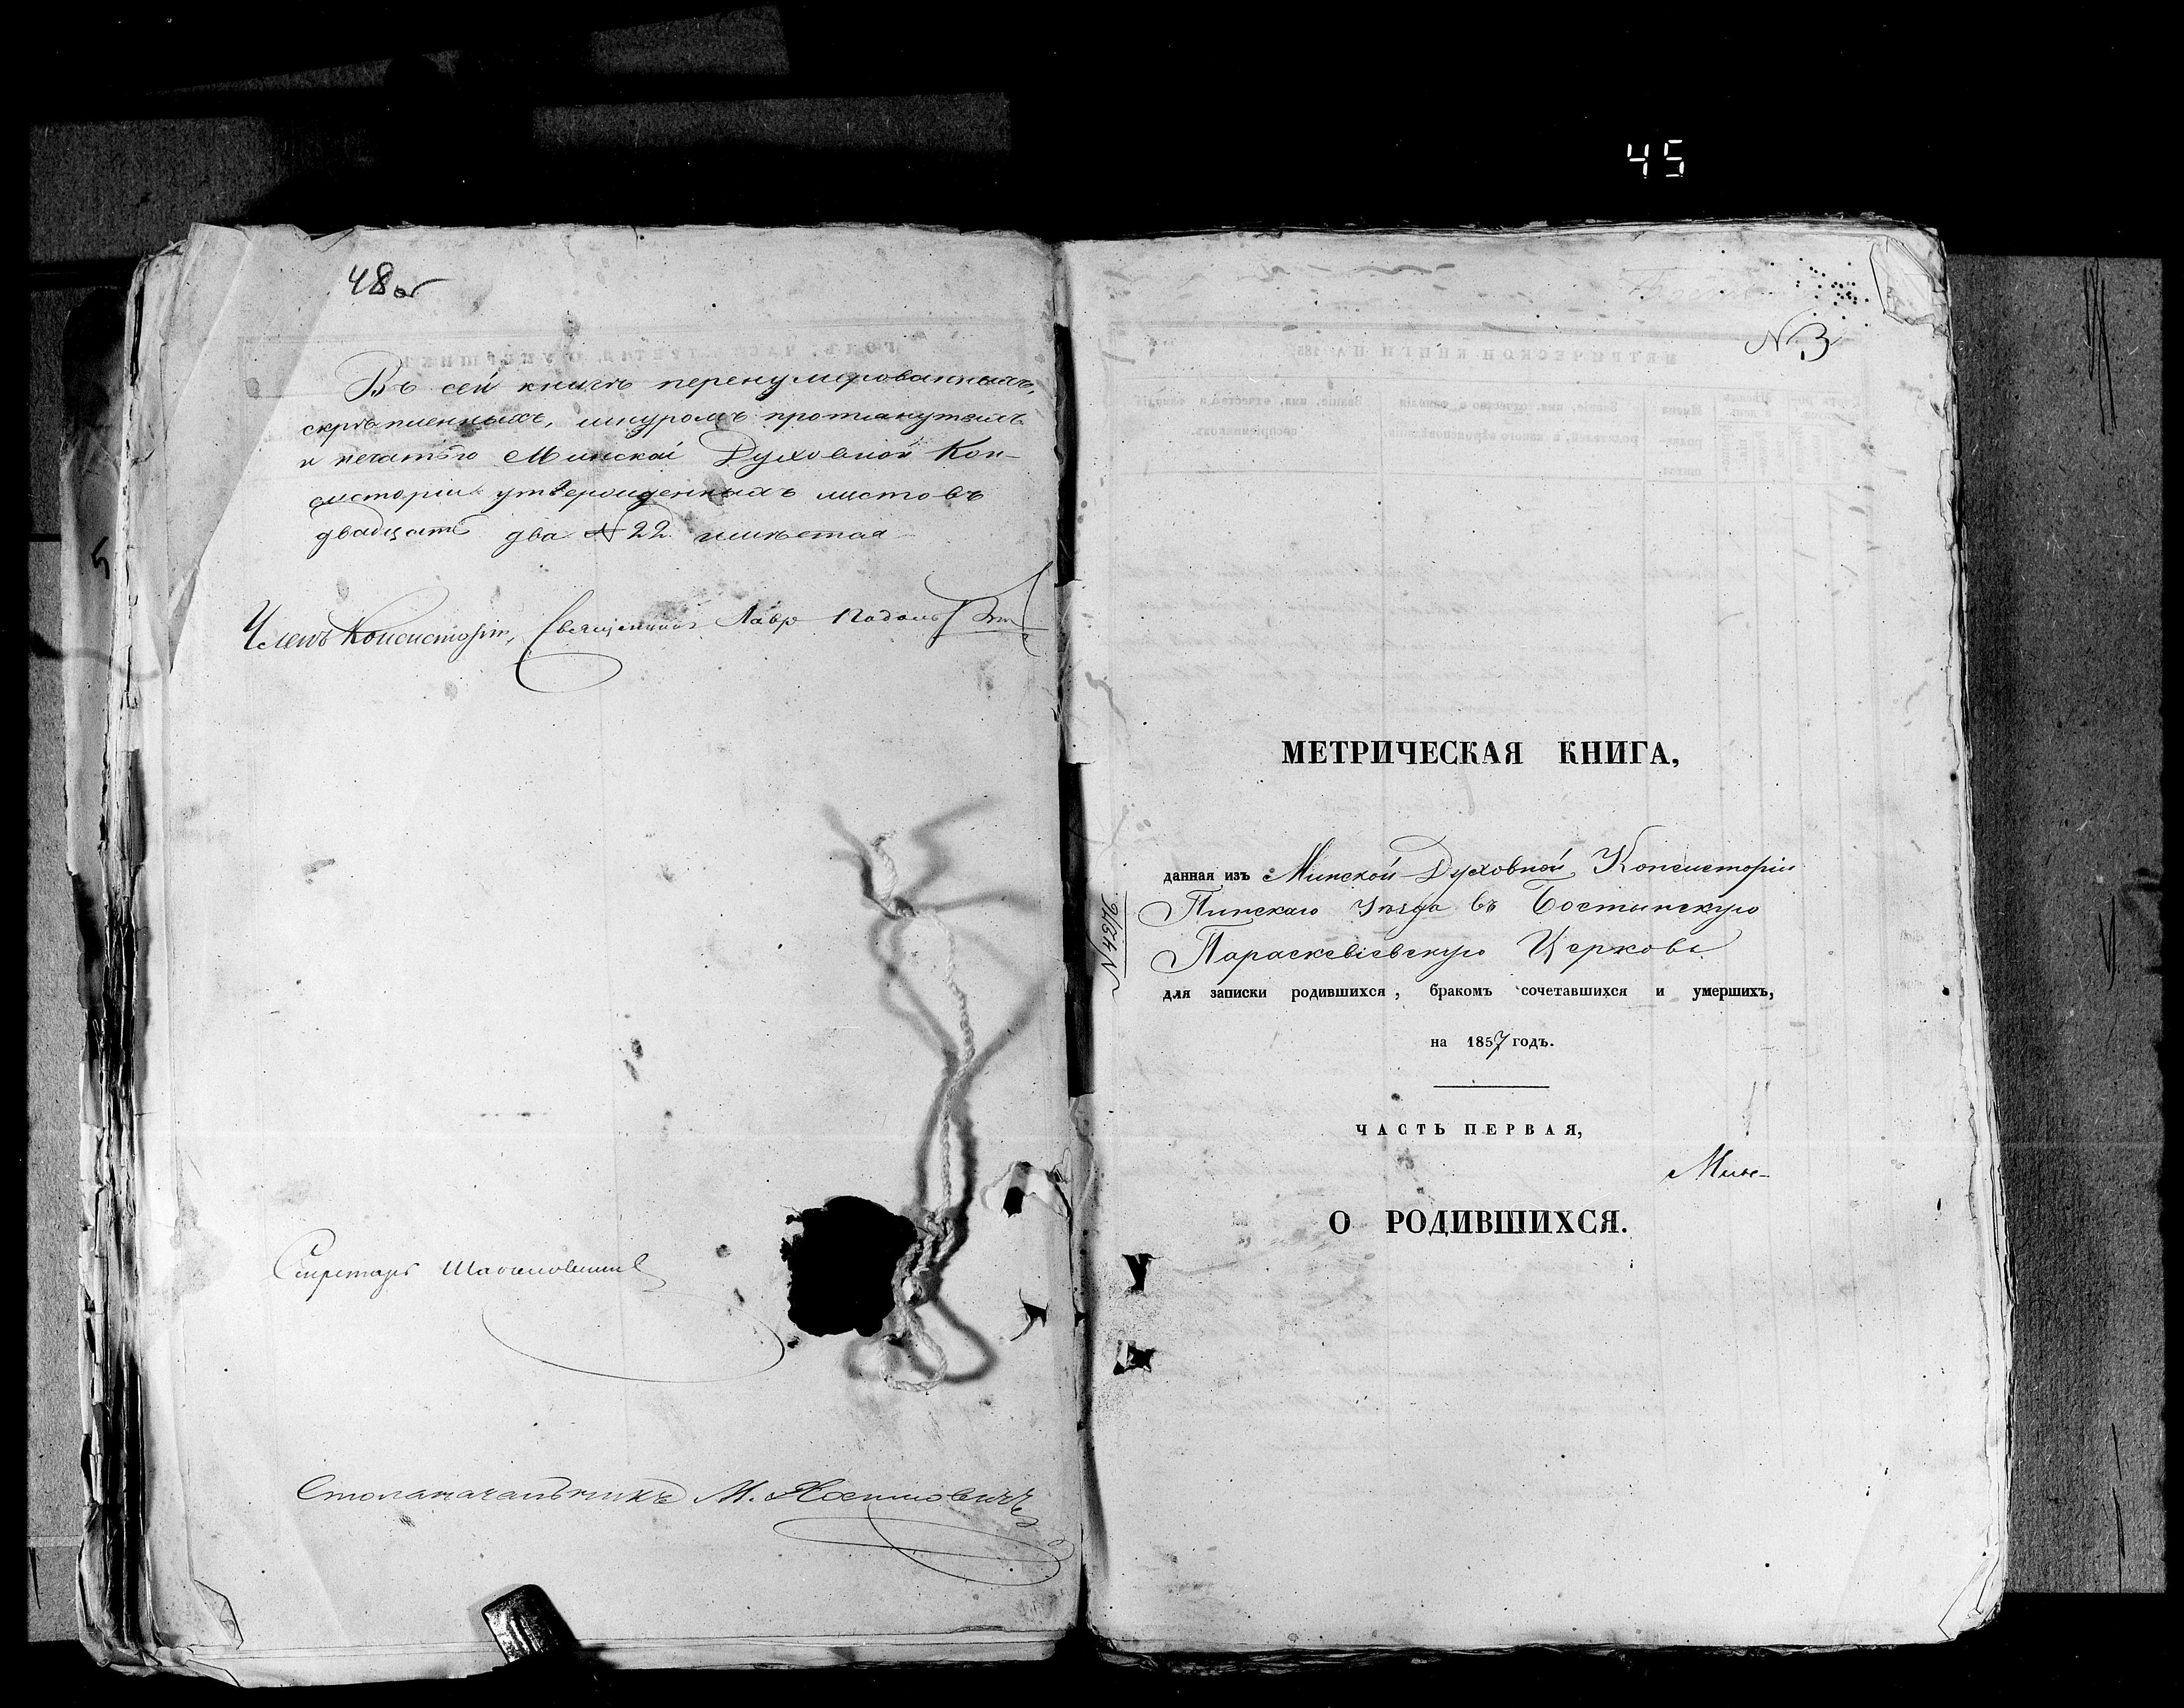 45
48об
Въ сей книгѣ перенумерованныхъ,
скрѣпленныхъ, шнуромъ протянутыхъ
и печатью Минской Духовной Кон-
систоріи утвержденныхъ листовъ
двадцать два № 22 имѣется
Членъ Консисторіи, Священникъ Лавръ
Секретарь
Столоначальникъ М.
5
№ 3
МЕТРИЧЕСКАЯ КНИГА,
данная изъ Минской Духовной Консисторіи
Пинскаго Уѣзда въ Бостынскую
Параскевіевскую Церковь
для записки родившихся, бракомъ сочетавшихся и умершихъ,
на 1857 годъ.
ЧАСТЬ ПЕРВАЯ,
О РОДИВШИХСЯ.